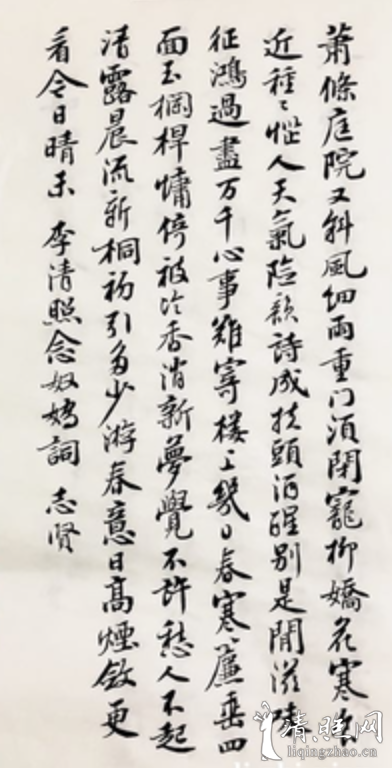 蕭條庭院又斜風細雨重门須閉寵柳嬌花寒食
近種種惱人天氣險韻詩成扶頭酒醒别是閒滋味
征鴻過盡万千心事難寄楼上幾日春寒簾垂四
面玉欄桿慵倚被冷香消新夢覺不許愁人不起
清露晨流新桐初引多少游春意日高煙斂更
看今日晴未 李清照念奴嬌詞 志贤
清照网
liqingzhao.cn